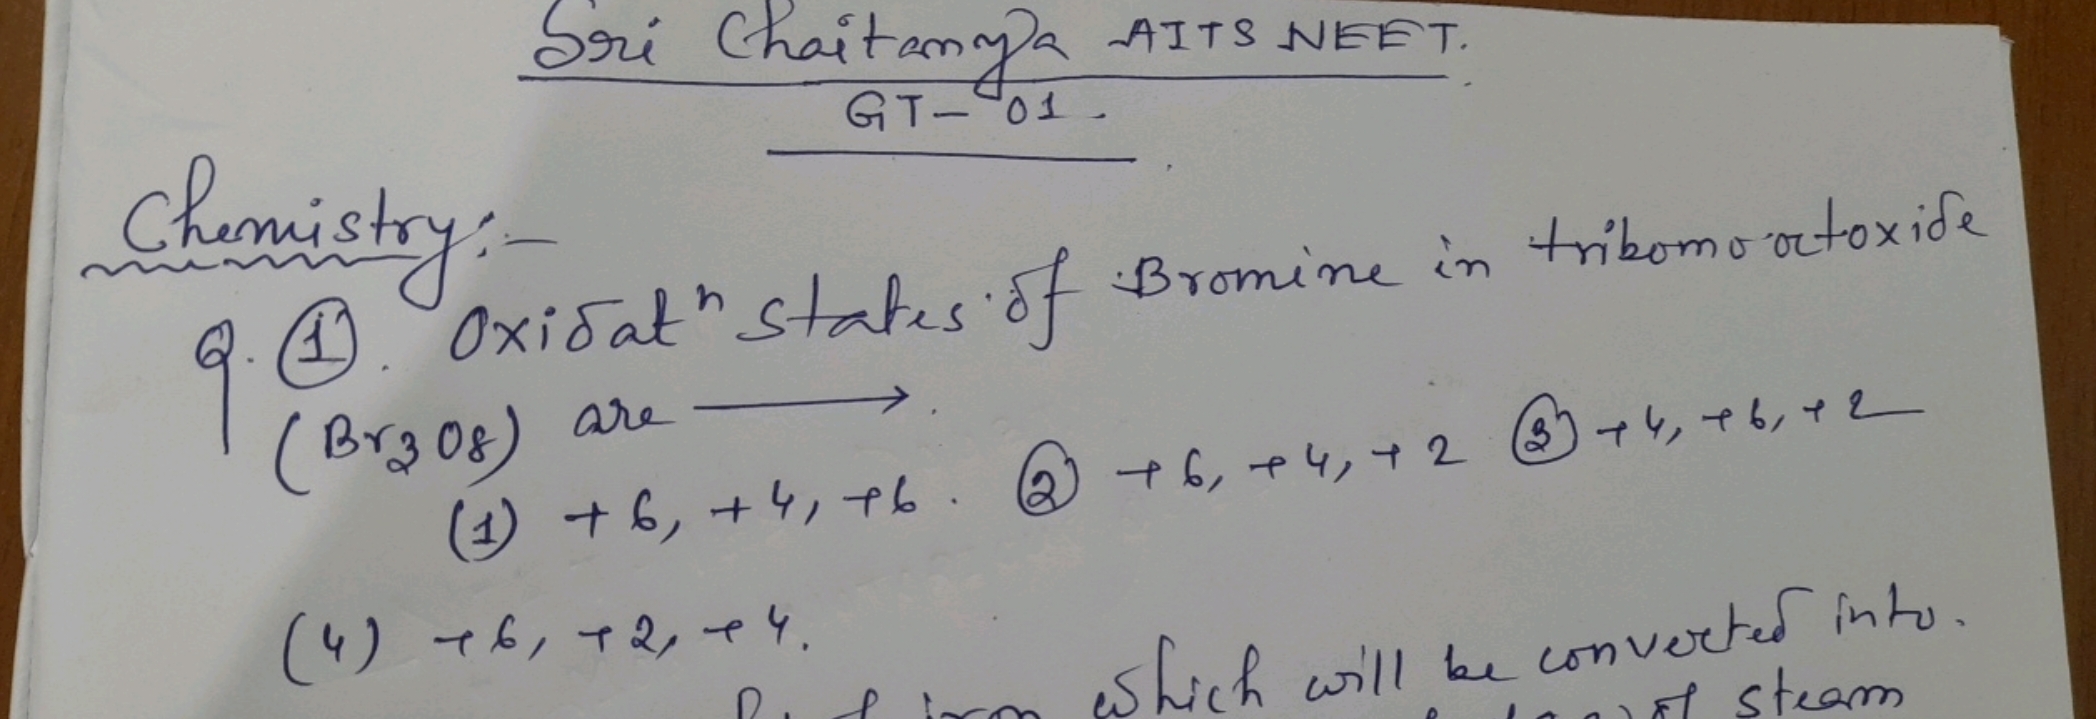 Sri Chaitanya AITS NEET.
GT-01.
Chemistry:-
Q. ①. Oxidatⁿ states of Bromine in tribomooctoxide
(Br3O8) are ⟶.
(1) +6, +4, +6. ② +6, +4, +2 ③ +4, +6, +2
(4) +6, +2, +4.
iron which will be converted into.
of steam